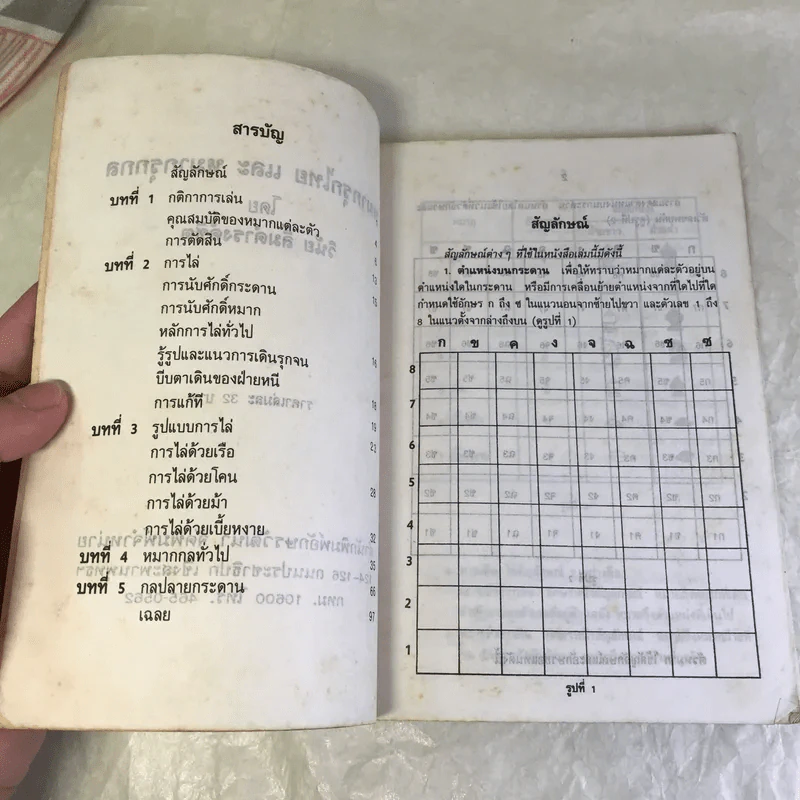 สารบัญ
สัญลักษณ์
บทที่ 1 กติกาการเล่น 1
คุณสมบัติของหมากแต่ละตัว 4
การตัดสิน 8
บทที่ 2 การไล่ 12
การนับศักดิ์กระดาน 15
การนับศักดิ์หมาก
หลักการไล่ทั่วไป
รู้รูปและแนวการเดินรุกจน 16
บีบตาเดินของฝ่ายหนี
การแก้ที 18
บทที่ 3 รูปแบบการไล่ 19
การไล่ด้วยเรือ 23
การไล่ด้วยโคน
การไล่ด้วยม้า 28
การไล่ด้วยเบี้ยหงาย 32
บทที่ 4 หมากกลทั่วไป 35
บทที่ 5 กลปลายกระดาน 66
เฉลย 97
สัญลักษณ์
สัญลักษณ์ต่าง ๆ ที่ใช้ในหนังสือเล่มนี้มีดังนี้
1. ตำแหน่งบนกระดาน เพื่อให้ทราบว่าหมากแต่ละตัวอยู่บน
ตำแหน่งใดในกระดาน หรือมีการเคลื่อนย้ายตำแหน่งจากที่ใดไปที่ใด
กำหนดใช้อักษร ก ถึง ช ในแนวนอนจากซ้ายไปขวา และตัวเลข 1 ถึง
8 ในแนวตั้งจากล่างถึงบน (ดูรูปที่ 1)
ก ข ค ง จ ฉ ช ซ
8
7
6
5
4
3
2
1
รูปที่ 1